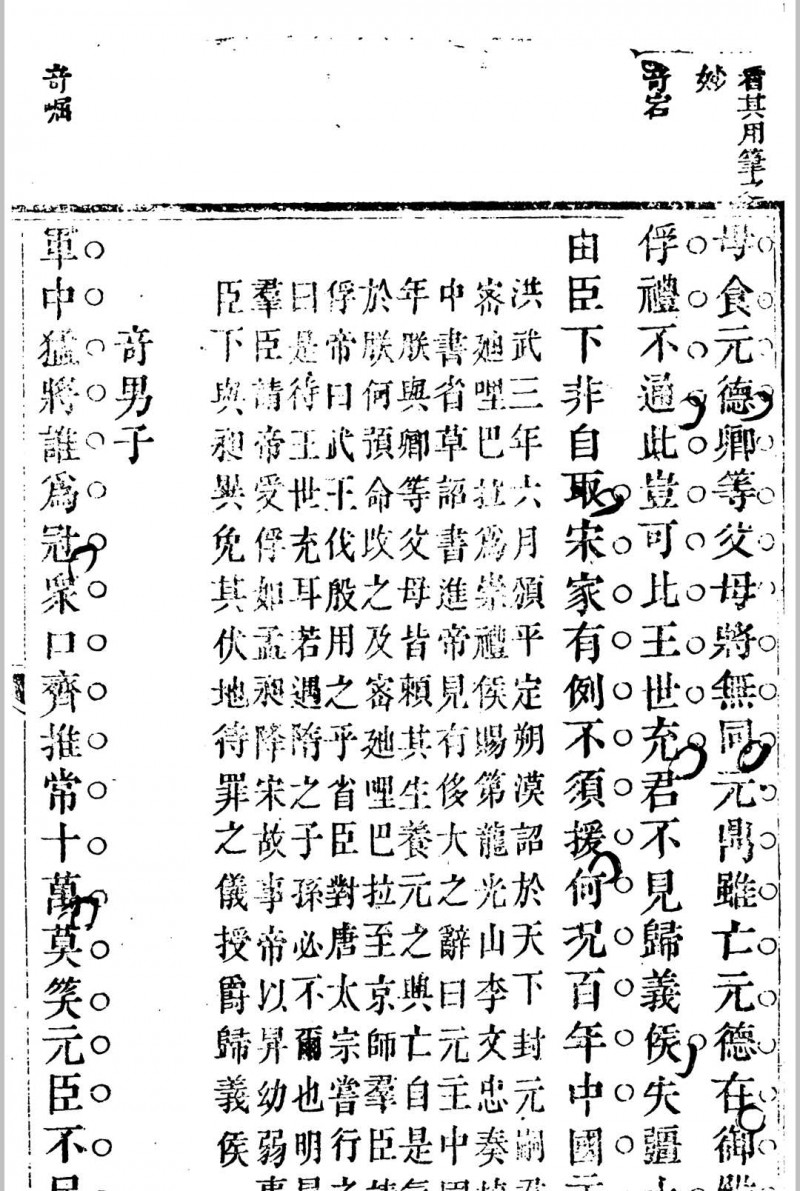 看其用筆之
妙
奇宕
奇崛
母食元德卿等父母將無同元鼎雖亡元德在御
俘禮不通此豈可比王世充君不見歸義侯失疆
由臣下非自取宋家有例不須援何况百年中國元
洪武三年六月頒平定朔漠詔於天下封元嗣君
審廸哩巴拉爲崇禮侯賜第龍光山李文忠奏
中書省草詔書進帝見有侈大之辭曰元主中國
年朕與卿等父母皆賴其生養元之興亡自是氣
於朕何預命改之及審廸哩巴拉至京師羣臣
俘帝曰武王伐殷用之乎省臣對唐太宗嘗行之
曰是待王世充耳若遇隋之子孫必不爾也明
羣臣請帝受俘如孟昶降宋故事帝以昇幼弱事
臣下與昶異免其伏地待罪之儀授爵歸義侯
奇男子
軍中猛將誰爲冠衆口齊推常十萬莫笑元臣不